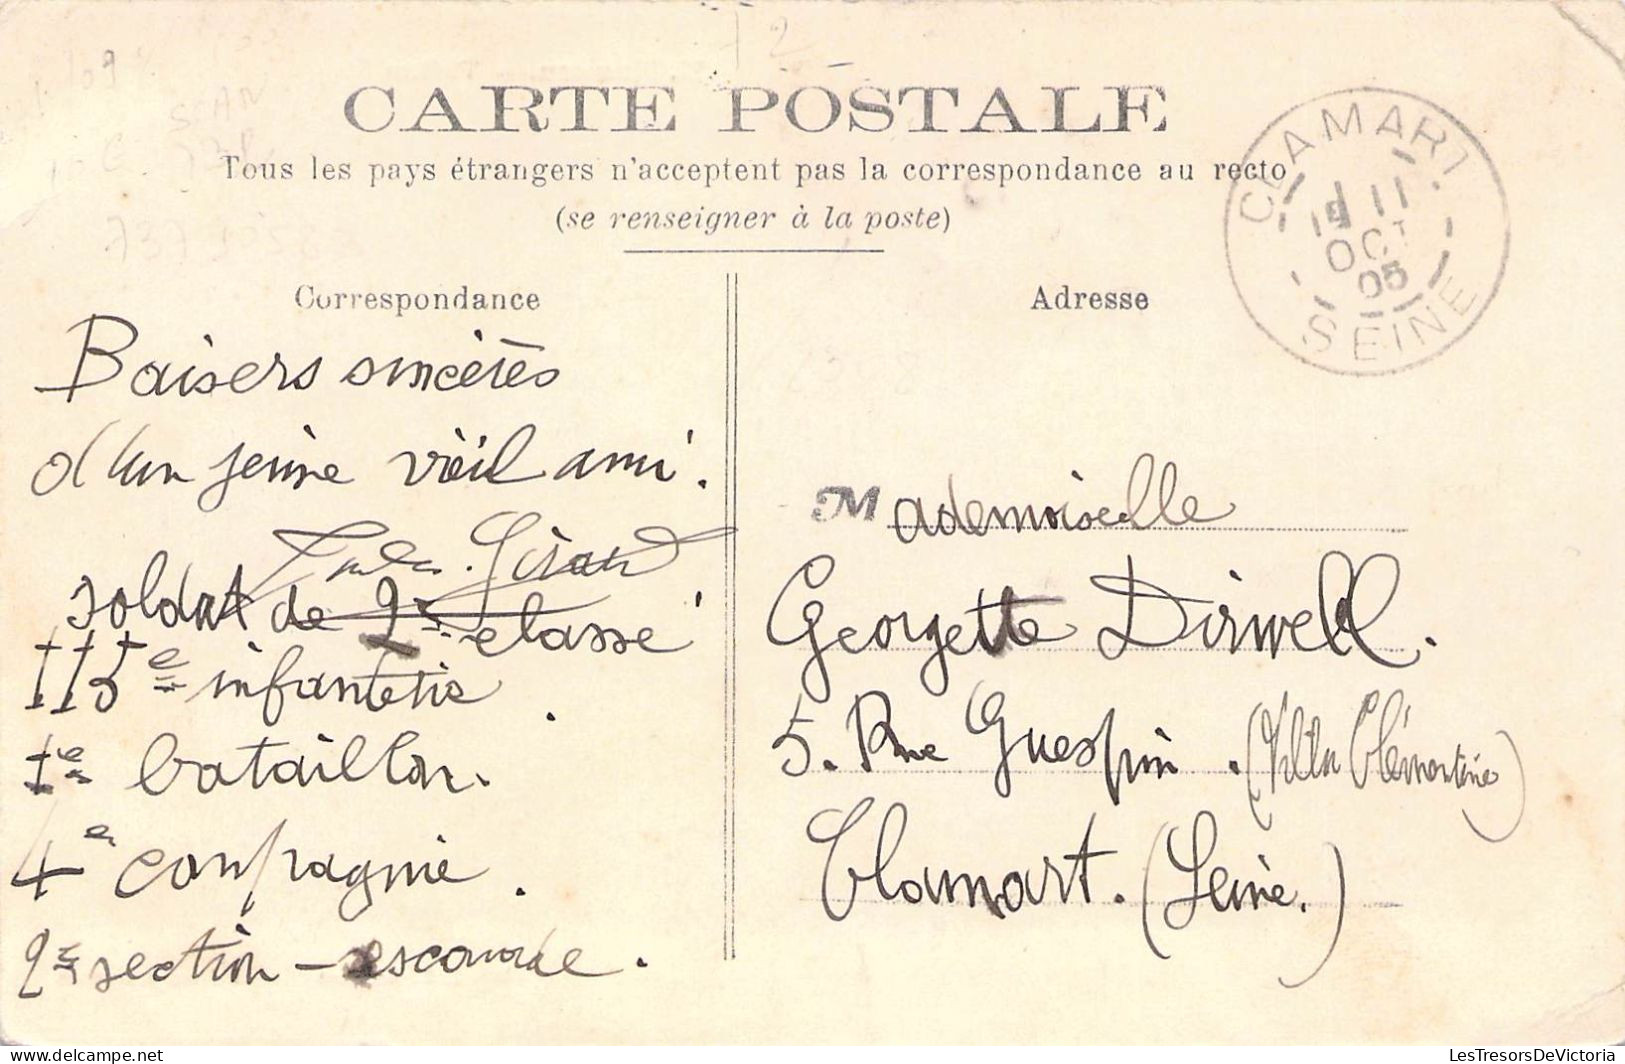 CARTE POSTALE
Tous les pays étrangers n'acceptent pas la correspondance au recto
(se renseigner à la poste)
Correspondance
Adresse
CLAMART
11
OCT
05
SEINE
Baisers sincères
d'un jeune vieil ami.
Jules Girard
soldat de 2e classe
115e infanterie.
1e bataillon.
4e compagnie.
2e section - escouade.
Mademoiselle
Georgette Dirwell.
5. Rue Guespin. (Villa Clémentine)
Clamart. (Seine.)
LesTresorsDeVictoria